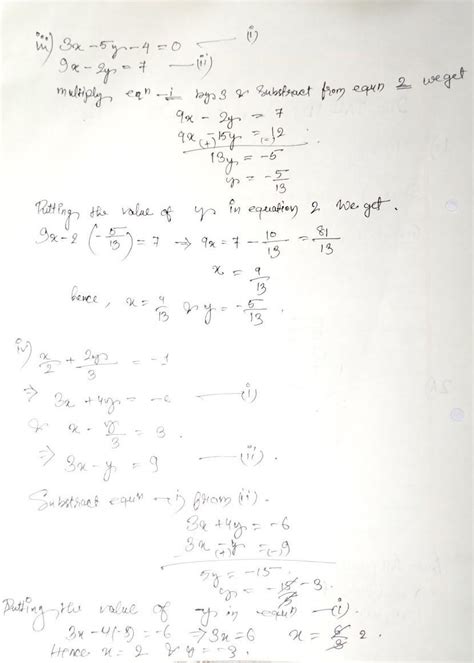 iii) 3x - 5y - 4 = 0 —— (i)
9x - 2y = 7 —— (ii)
multiply eqn - i by 3 & Substract from equn 2 we get
9x - 2y = 7
9x - 15y = 12
(+) (-)
13y = -5
y = -5/13
Putting the value of y in equation 2 We get.
9x - 2 (-5/13) = 7 → 9x = 7 - 10/13 = 81/13
x = 9/13
hence, x = 9/13 & y = -5/13.
iv) x/2 + 2y/3 = -1
⇒ 3x + 4y = -6 —— (i)
& x - y/3 = 3.
⇒ 3x - y = 9 —— (ii)
Substract equn - i) from (ii).
3x + 4y = -6
3x - y = 9
(+) (-)
5y = -15.
y = -15/5 - 3.
Putting the value of y in equn — (i).
3x - 4(-3) = -6 ⇒ 3x = 6 x = 6/3 2.
Hence x = 2 & y = -3.